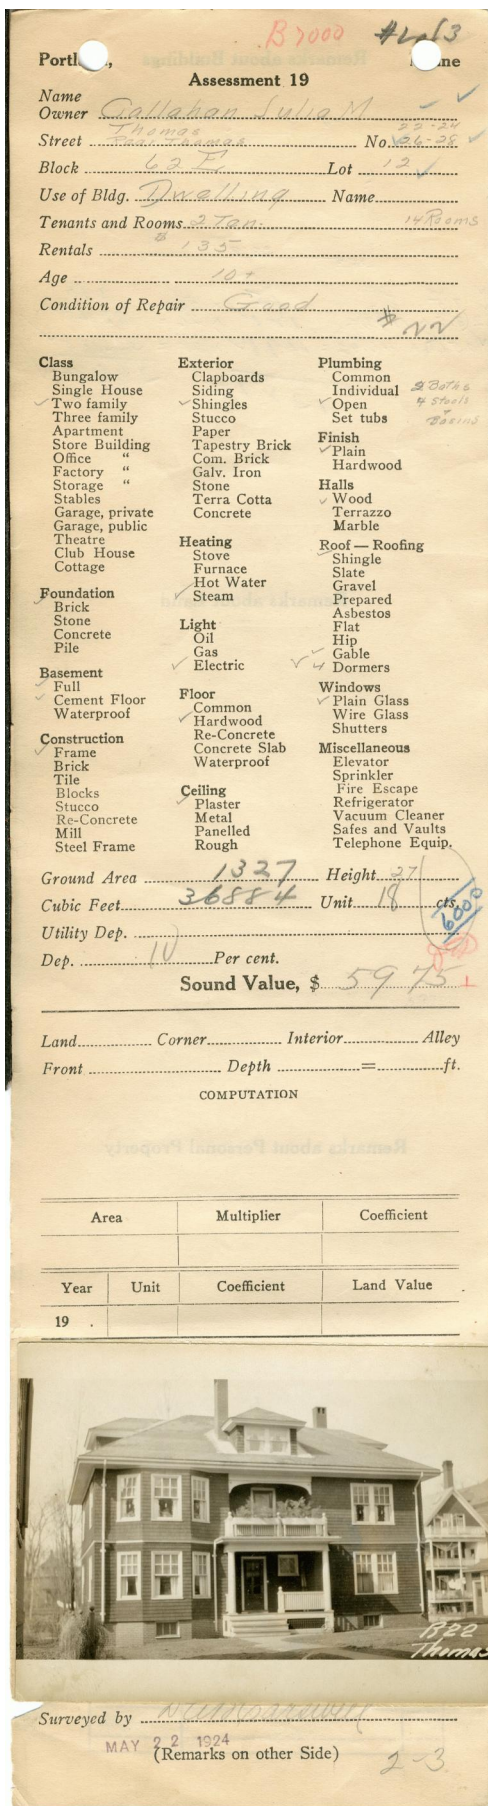 B 7000 #2 of 3
Portl , ine
Assessment 19
Name
Owner Callahan Julia M
Thomas 22-24
Street Rear Thomas No. 26-28
Block 62 E Lot 12
Use of Bldg. Dwelling Name
Tenants and Rooms 2 Ten. 14 Rooms
Rentals $ 135
Age 10+
Condition of Repair Good
$ 22
Class
Bungalow
Single House
Two family
Three family
Apartment
Store Building
Office "
Factory "
Storage "
Stables
Garage, private
Garage, public
Theatre
Club House
Cottage
Foundation
Brick
Stone
Concrete
Pile
Basement
Full
Cement Floor
Waterproof
Construction
Frame
Brick
Tile
Blocks
Stucco
Re-Concrete
Mill
Steel Frame
Exterior
Clapboards
Siding
Shingles
Stucco
Paper
Tapestry Brick
Com. Brick
Galv. Iron
Stone
Terra Cotta
Concrete
Heating
Stove
Furnace
Hot Water
Steam
Light
Oil
Gas
Electric
Floor
Common
Hardwood
Re-Concrete
Concrete Slab
Waterproof
Ceiling
Plaster
Metal
Panelled
Rough
Plumbing
Common
Individual 2 Baths
Open 4 Stools
Set tubs Basins
Finish
Plain
Hardwood
Halls
Wood
Terrazzo
Marble
Roof — Roofing
Shingle
Slate
Gravel
Prepared
Asbestos
Flat
Hip
Gable
4 Dormers
Windows
Plain Glass
Wire Glass
Shutters
Miscellaneous
Elevator
Sprinkler
Fire Escape
Refrigerator
Vacuum Cleaner
Safes and Vaults
Telephone Equip.
Ground Area 1327 Height 27
Cubic Feet 36884 Unit 18 cts.
6000
Utility Dep.
Dep. 10 Per cent.
Sound Value, $ 5975
Land Corner Interior Alley
Front Depth = ft.
COMPUTATION
Remarks about Personal Property
Area Multiplier Coefficient
Year Unit Coefficient Land Value
19 .
B22
Thomas
Surveyed by
MAY 22 1924
(Remarks on other Side) 2-3